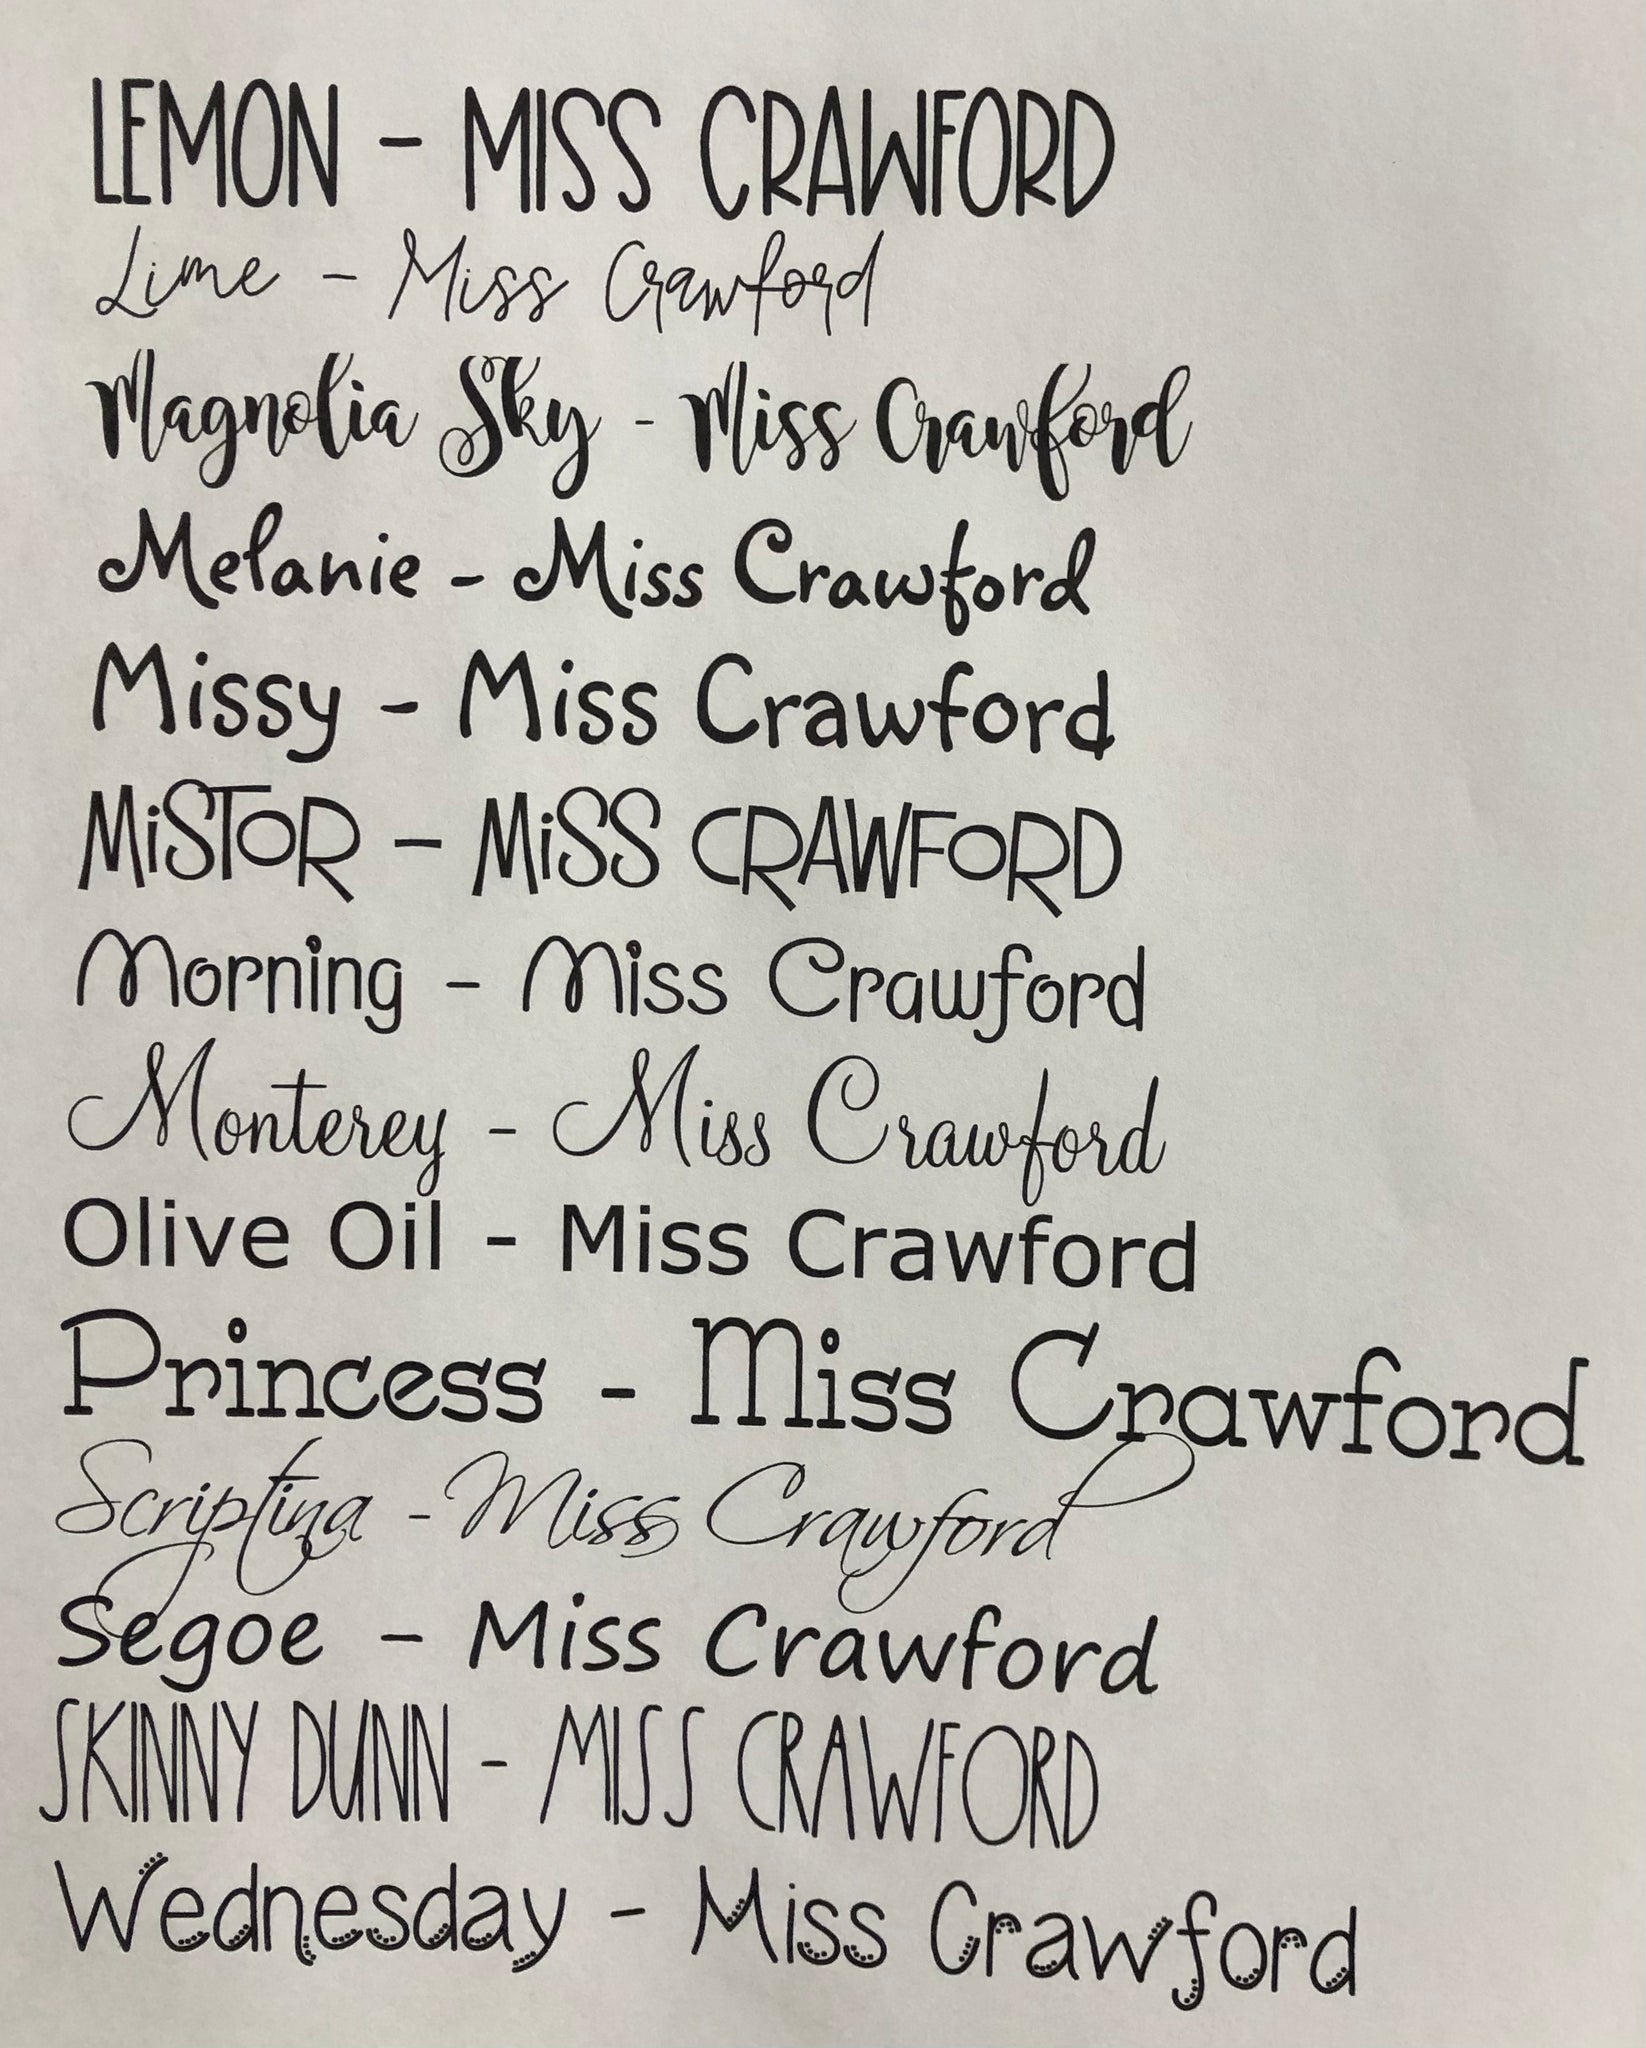 LEMON - MISS CRAWFORD
Lime - Miss Crawford
Magnolia Sky - Miss Crawford
Melanie - Miss Crawford
Missy - Miss Crawford
MiSTOR - MiSS CRAWFORD
Morning - Miss Crawford
Monterey - Miss Crawford
Olive Oil - Miss Crawford
Princess - Miss Crawford
Scriptina - Miss Crawford
Segoe - Miss Crawford
SKINNY DUNN - MISS CRAWFORD
Wednesday - Miss Crawford